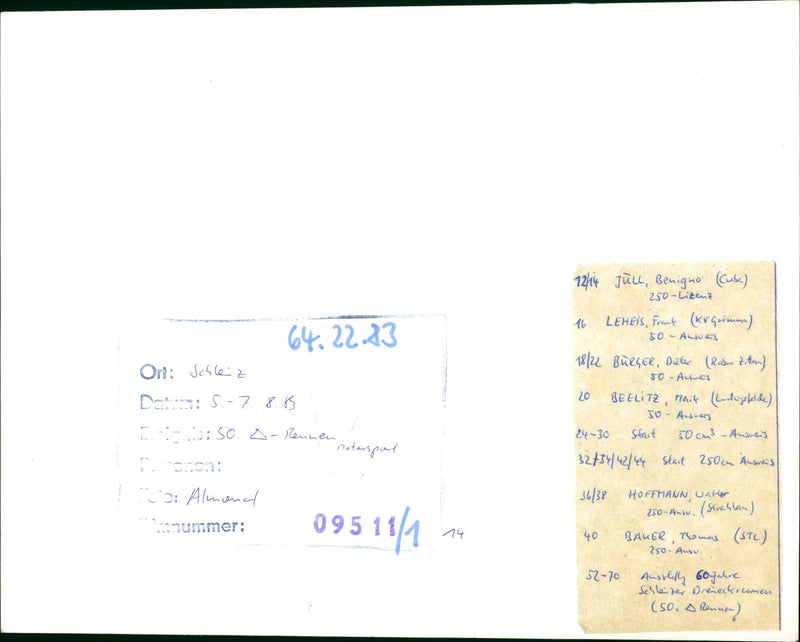 64.22.83
Ort: Schleiz
Datum: 5.-7. 8. 83
Ereignis: 50 Δ-Rennen
Motorsport
Personen:
Foto: Almonat
Filmnummer: 09511/1
14
12/14 JÜLL, Benigno (Cuba)
250-Lizenz
16 LEHEIS, Frank (KV Grimma)
50-Ausweis
18/22 BÜRGER, Dieter (Robur Zittau)
50-Ausweis
20 BEELITZ, Maik (Ludwigsfelde)
50-Ausweis
24-30 Start 50 cm³-Ausweis
32/34/42/44 Start 250cm Ausweis
36/38 HOFFMANN, Walter
250-Ausw. (Strehlau)
40 BAUER, Thomas (STL)
250-Ausw.
52-70 Ausstellg 60 Jahre
Schleizer Dreieckrennen
(50. Δ Rennen)